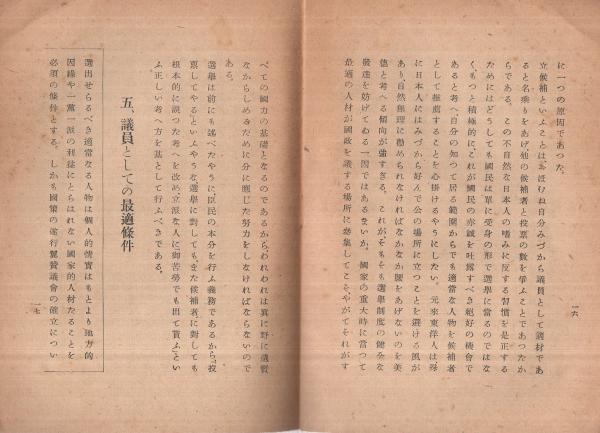 に一つの原因であつた。
立候補といふことはおほむね自分みづから議員として適材であ
ると名乗りをあげ他の候補者と投票の数を爭ふことであつたか
らである。この不自然な日本人の嗜みに反する習慣を是正する
ためにはどうしても國民は單に受身の形で選擧に當るのではな
く、もつと積極的に、これが國民の赤誠を吐露すべき絶好の機會で
あると考へ自分の知つて居る範圍からでも適當な人物を候補者
として推薦することを心掛けるやうにしたい。元來東洋人は殊
に日本人にはみづから好んで公の場所に立つことを避ける風が
あり、自然無理に勸められなければなかなか腰をあげないのを美
德と考へる傾向が强すぎる。これが、そもそも選擧制度の健全な
發達を妨げてゐる一因ではあるまいか。國家の重大時に當つて
最適の人材が國政を議する場所に參集してこそ、やがてそれがす
一六
べての國力の基礎となるのであるから、われわれは眞に野に遺賢
なからしめるために分に應じた努力をしなければならないので
ある。
選擧は前にも述べたやうに、臣民の本分を行ふ義務であるから、「投
票してやる」といふやうな選擧に對しても、また候補者に對しても
根本的に誤つた考へを改め立派な人に「御苦勞でも出て貰ふ」とい
ふ正しい考へ方を基として行ふべきである。
五、議員としての最適條件
選出せらるべき適當なる人物は個人的情實はもとより地方的
因緣や一黨一派の利益にとらはれない國家的人材たることを
必須の條件とする。しかも國策の遂行翼贊議會の確立につい
一七